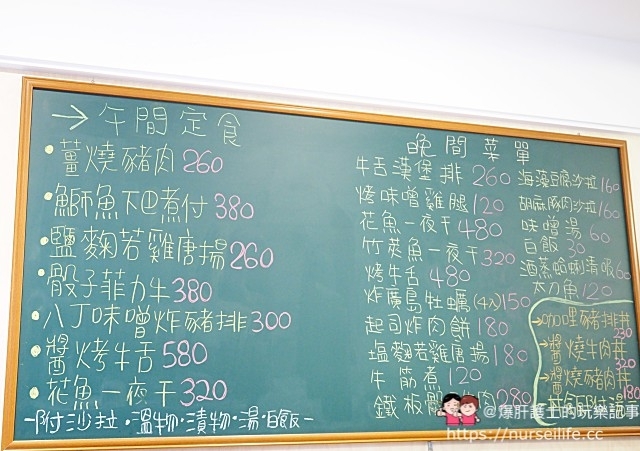 →午間定食
·薑燒豬肉260
·鰤魚下巴煮付380
·鹽麴若雞唐揚260
·骰子菲力牛380
·八丁味噌炸豬排300
·醬烤牛舌580
·花魚一夜干320
-附沙拉·溫物·漬物·湯·白飯-
晚間菜單
牛舌漢堡排260
烤味噌雞腿120
花魚一夜干480
竹筴魚一夜干320
烤牛舌480
炸廣島牡蠣(4入)150
起司炸肉餅180
塩麴若雞唐揚180
牛筋煮120
鐵板 肉280
海藻豆腐沙拉160
胡麻豚肉沙拉160
味噌湯60
白飯30
酒蒸蛤蜊清湯60
太刀魚120
→咖哩豬排丼
230
→醬燒牛肉丼
320
→醬燒豬肉丼
180
@爆肝護士的玩樂記事
https://nurseilife.cc